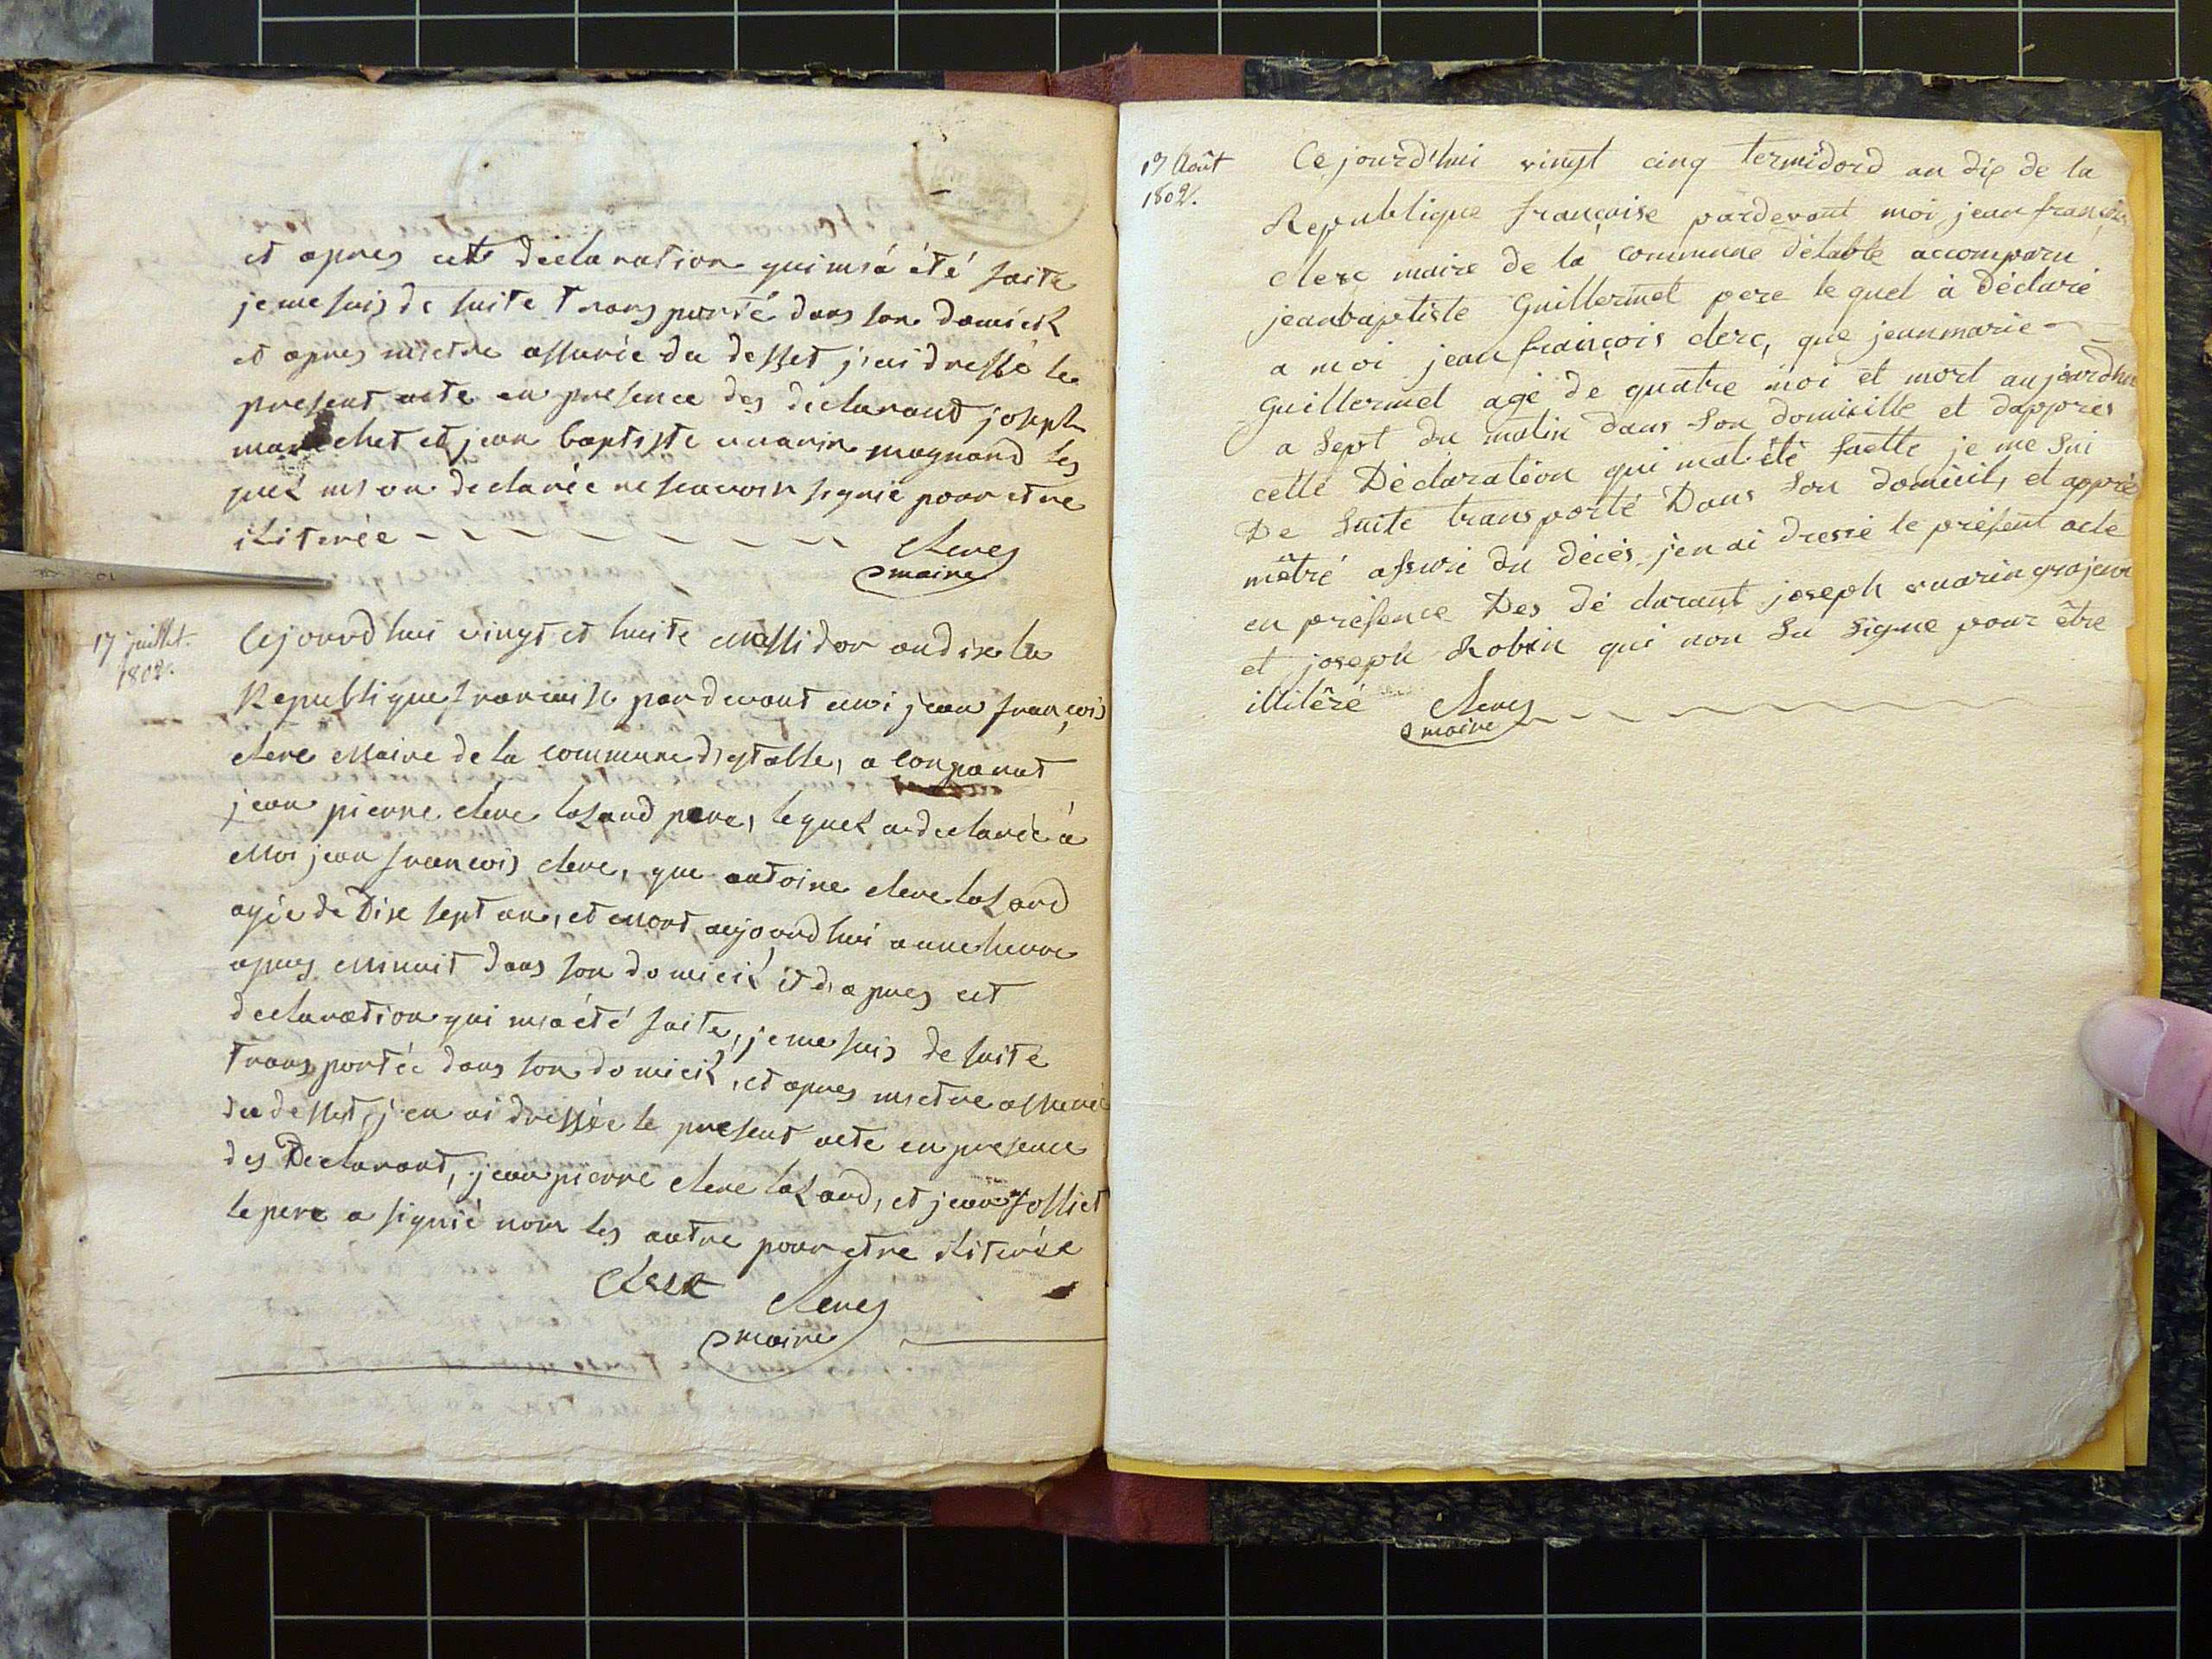 et apres cette declaration qui m'a été faite
je me suis de suite transporté dans son domicil
et apres mettre assurée du desset j'ai dressé le
present acte en presence des declarant joseph
marechet et jean baptiste cuvarin magnand les
quel m'on declarée ne scavoir signié pour etre
iliterée
clerc
maire
17 juillet
1802.
Cejourdhui vingt et huite Messidor an dix la
Republique francaise pardevant moi jean françois
clerc Maire de la commune d'estable, a Comparut
jean pierre clerc laland pere, lequel a declarée à
Moi jean françois clerc, que antoine clerc laland
agée de Dix sept an, et mort aujourdhui a une heure
apres Minuit dans son domicil et d'apres cet
declaration qui m'a été faite, je me suis de suite
transportée dans son domicil, et apres metre assurée
du desset, j'en ai dressée le present acte en presence
des Declarant, jean pierre clerc laland, et jean folliet
le pere a signié nom les autre pour etre iliterée
Clerc
clerc
maire
19 Août
1802.
Ce jourd'hui vingt cinq termidord an dix de la
Republique françaive pardevant moi jean françois
clerc maire de la commune détable accomparu
jeanbaptiste Guillermet pere le quel à déclaré
a moi jean françois clerc, que jeanmarie
Guillermet agé de quatre moi et mort aujourdhui
a sept du matin dans son domicille et dappres
cette Déclaration qui mat été faette je me sui
De suite transporté Dans son domicil, et apprè
mêtré assuré du décés j'en ai dressé le présent acte
en présence Des dé clarant joseph cuarin grojean
et joseph Robin qui non su signe pour être
illitéré
clerc
maire